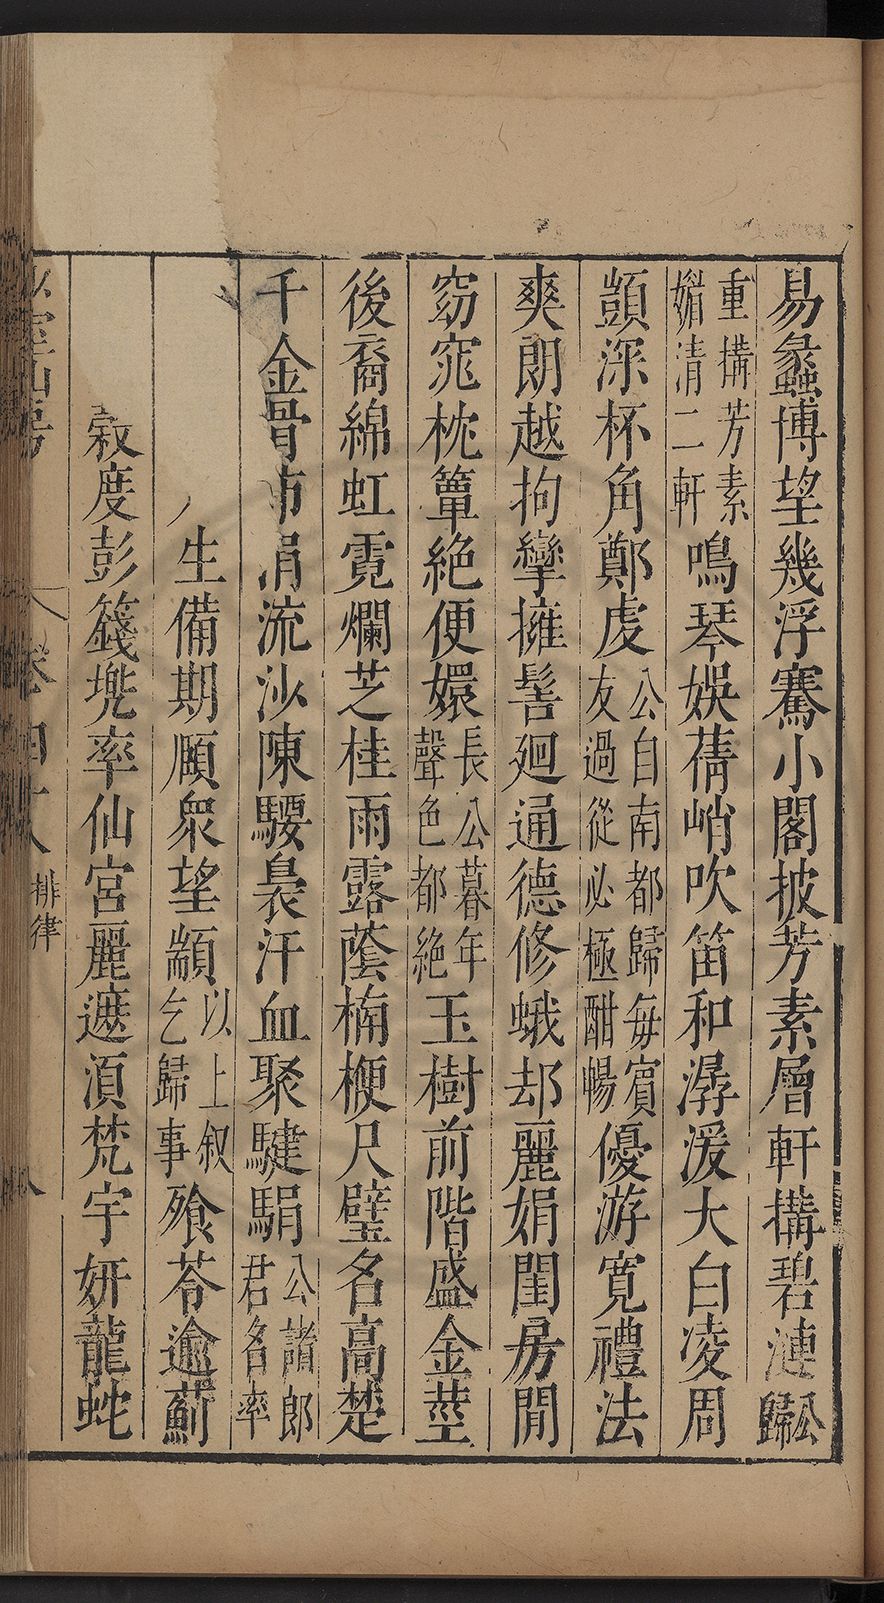 易蠡博望幾浮騫小閣披芳素層軒搆碧漣公歸
重搆芳素媚清二軒鳴琴娛蒨峭吹笛和潺湲大白凌周
顗深杯角鄭虔公自南都歸每賓友過從必極酣暢優游寬禮法
爽朗越拘攣擁髻廻通德修蛾却麗娟閨房閒
窈窕枕簟絶便嬛長公暮年聲色都絶玉樹前階盛金莖
後裔綿虹霓爛芝桂雨露蔭楠楩尺璧名高楚
千金骨市涓流沙陳騕裊汗血聚騝駽公諸郎君名率
生備期顧衆望顓以上叙乞歸事飱苓逾薊
綴度彭籛兠率仙宮麗遮湏梵宇妍龍蛇
少室山房 卷四十八 排律 八